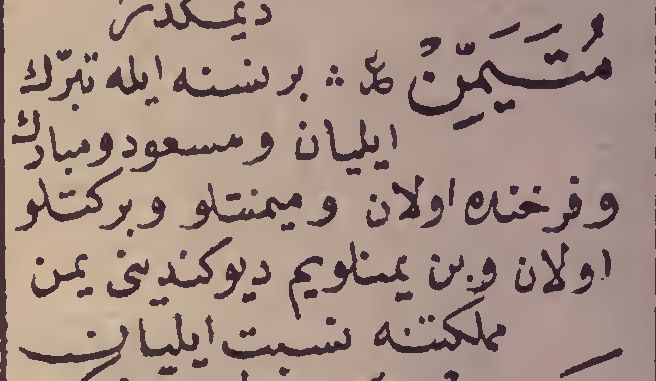 دیمكدر
مُتَيَمِّنٌ ع ∴ بر نسنه ایله تبرّك
ایلیان و مسعود و مبارك
و فرخنده اولان و میمنتلو و بركتلو
اولان و بن یمنلویم دیو كندینی یمن
مملكتنه نسبت ایلیان